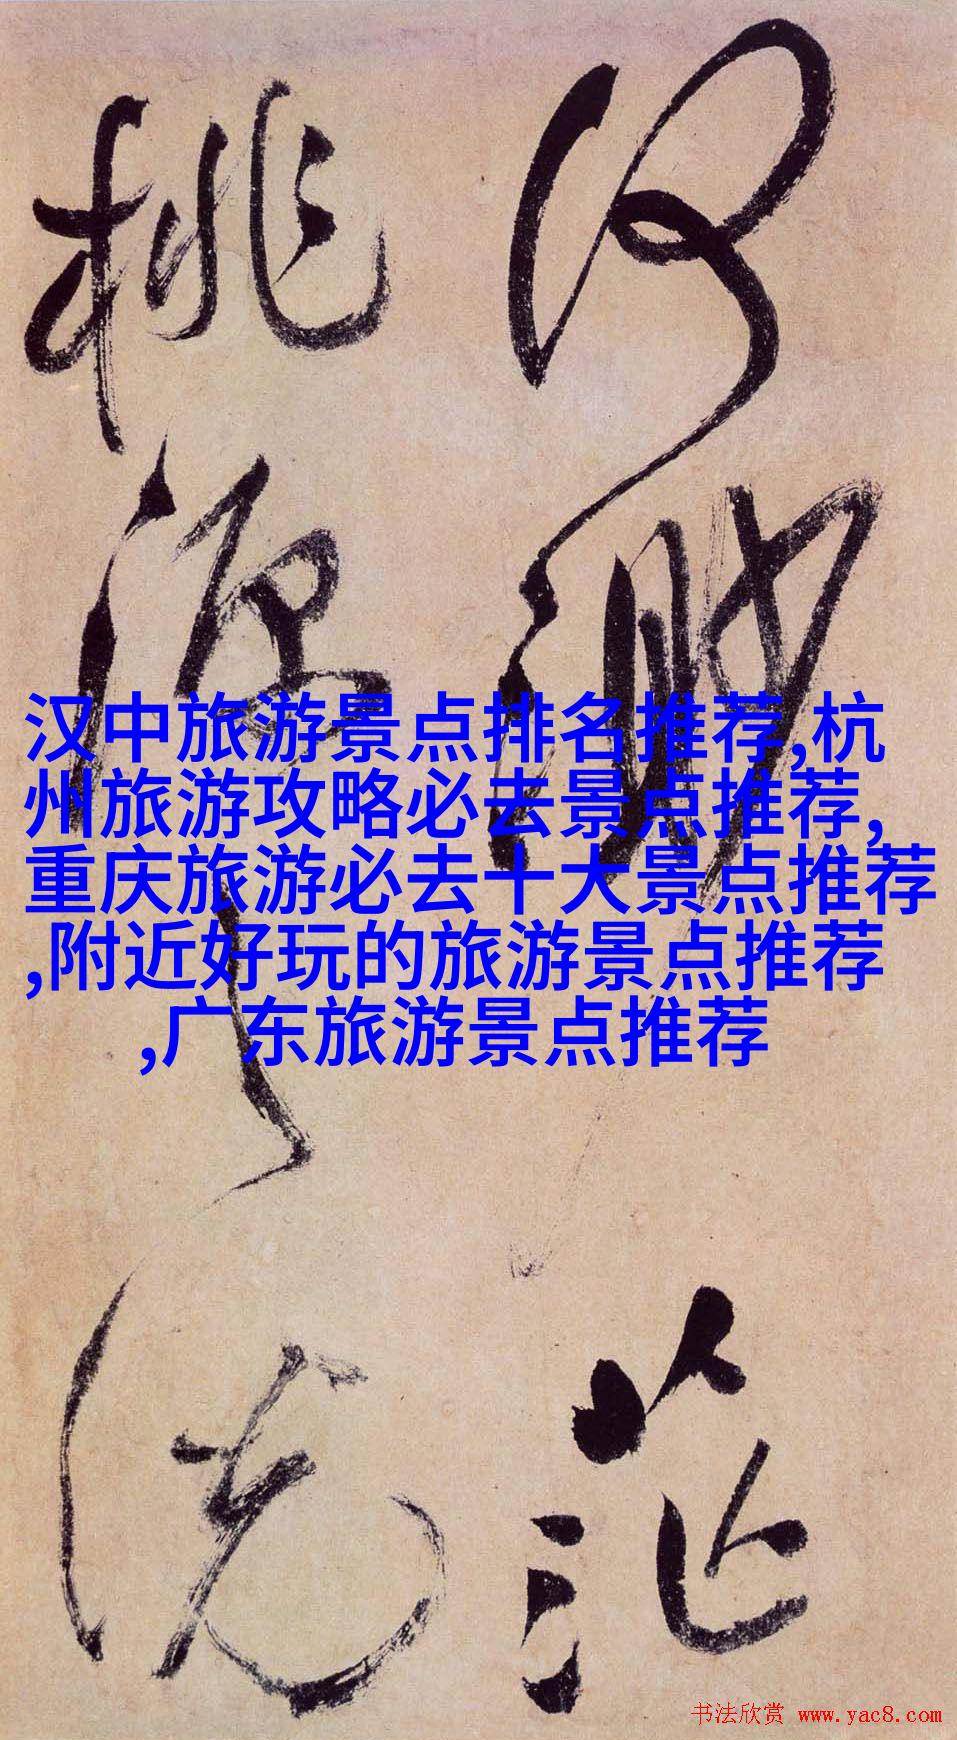 何渺
茫
桃源
之说
汉中旅游景点排名推荐,杭
州旅游攻略必去景点推荐,
重庆旅游必去十大景点推荐
,附近好玩的旅游景点推荐
,广东旅游景点推荐
书法欣赏 www.yac8.com